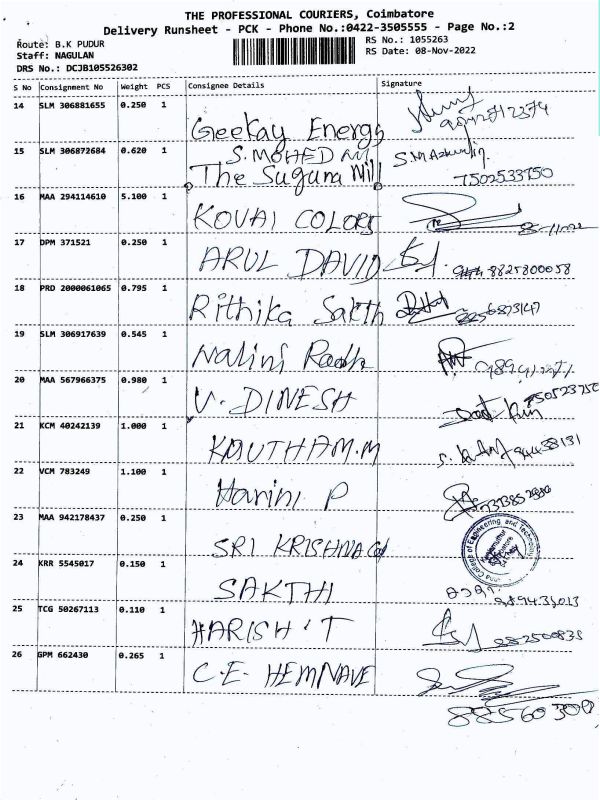 THE PROFESSIONAL COURIERS, Coimbatore
Delivery Runsheet - PCK - Phone No.:0422-3505555 - Page No.:2
Route: B.K PUDUR
RS No.: 1055263
Staff: NAGULAN
RS Date: 08-Nov-2022
DRS No.: DCJB105526302
S No Consignment No Weight PCS Consignee Details Signature
14 SLM 306881655 0.250 1
Geekay Energy
15 SLM 306872684 0.620 1
S. MOHED
The Suguna Mill
7502533750
16 MAA 294114610 5.100 1
KOVAI COLORS
17 DPM 371521 0.250 1
ARUL DAVID 8825800058
18 PRD 2000061065 0.795 1
Rithika Sakth
19 SLM 306917639 0.545 1
Nalini Radh
20 MAA 567966375 0.980 1
V. DINESH
21 KCM 40242139 1.000 1
KOUTHAM.M
22 VCM 783249 1.100 1
Harini P
23 MAA 942178437 0.250 1
SRI KRISHNA Col
College of Engineering and Technology
24 KRR 5545017 0.150 1
SAKTHI
25 TCG 50267113 0.110 1
HARISH T
26 GPM 662430 0.265 1
C.E. HEMNAVE